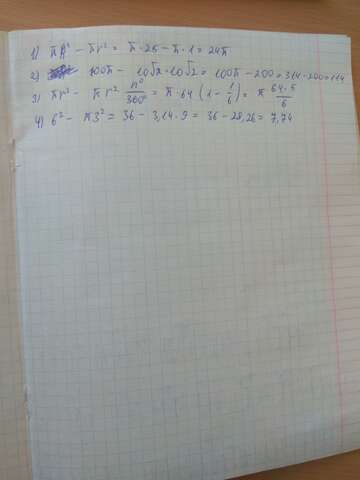 1) πR² - πr² = π·25 - π·1 = 24π
2) 100π - 10√2·10√2 = 100π - 200 = 314-200=114
3) πr² - πr²·n⁰/360⁰ = π·64 (1 - 1/6) = π 64·5/6
4) 6² - π3² = 36 - 3,14·9 = 36 - 28,26 = 7,74